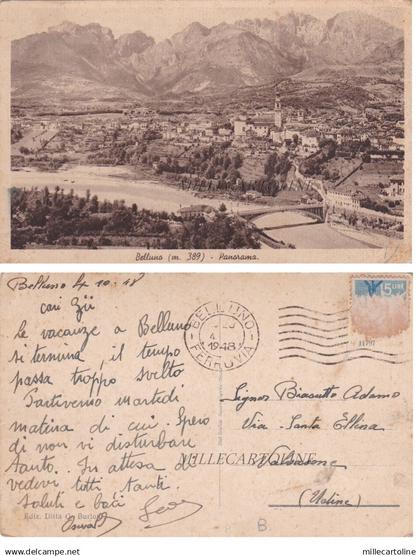 Belluno (m. 389) - Panorama.
MILLECARTOLINE
Belluno 4 10 48
cari Zii
le vacanze a Belluno
si termina, il tempo
passa troppo svelto
Partiremo martedi
matina di cui. Spero
di non vi disturbare
tanto. In attesa di
vedervi tutti tanti
saluti e baci
Ediz. Ditta G.
BELLUNO
4
1948
FERROVIA
15 LIRE
11797
Signor Biasutto Adamo
Via Santa Ellena
Valvasone
(Udine)
MILLECARTOLINE
B